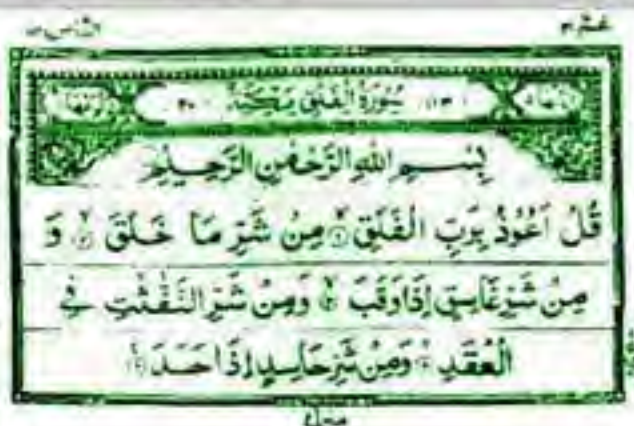 عم ٣٠ الناس ١١٤
سُوْرَةُ الْفَلَقِ مَكِّيَّةٌ
بِسْمِ اللّٰهِ الرَّحْمٰنِ الرَّحِيْمِ
قُلْ اَعُوْذُ بِرَبِّ الْفَلَقِ ۙ مِنْ شَرِّ مَا خَلَقَ ۙ وَ
مِنْ شَرِّ غَاسِقٍ اِذَا وَقَبَ ۙ وَمِنْ شَرِّ النَّفّٰثٰتِ فِي
الْعُقَدِ ۙ وَمِنْ شَرِّ حَاسِدٍ اِذَا حَسَدَ